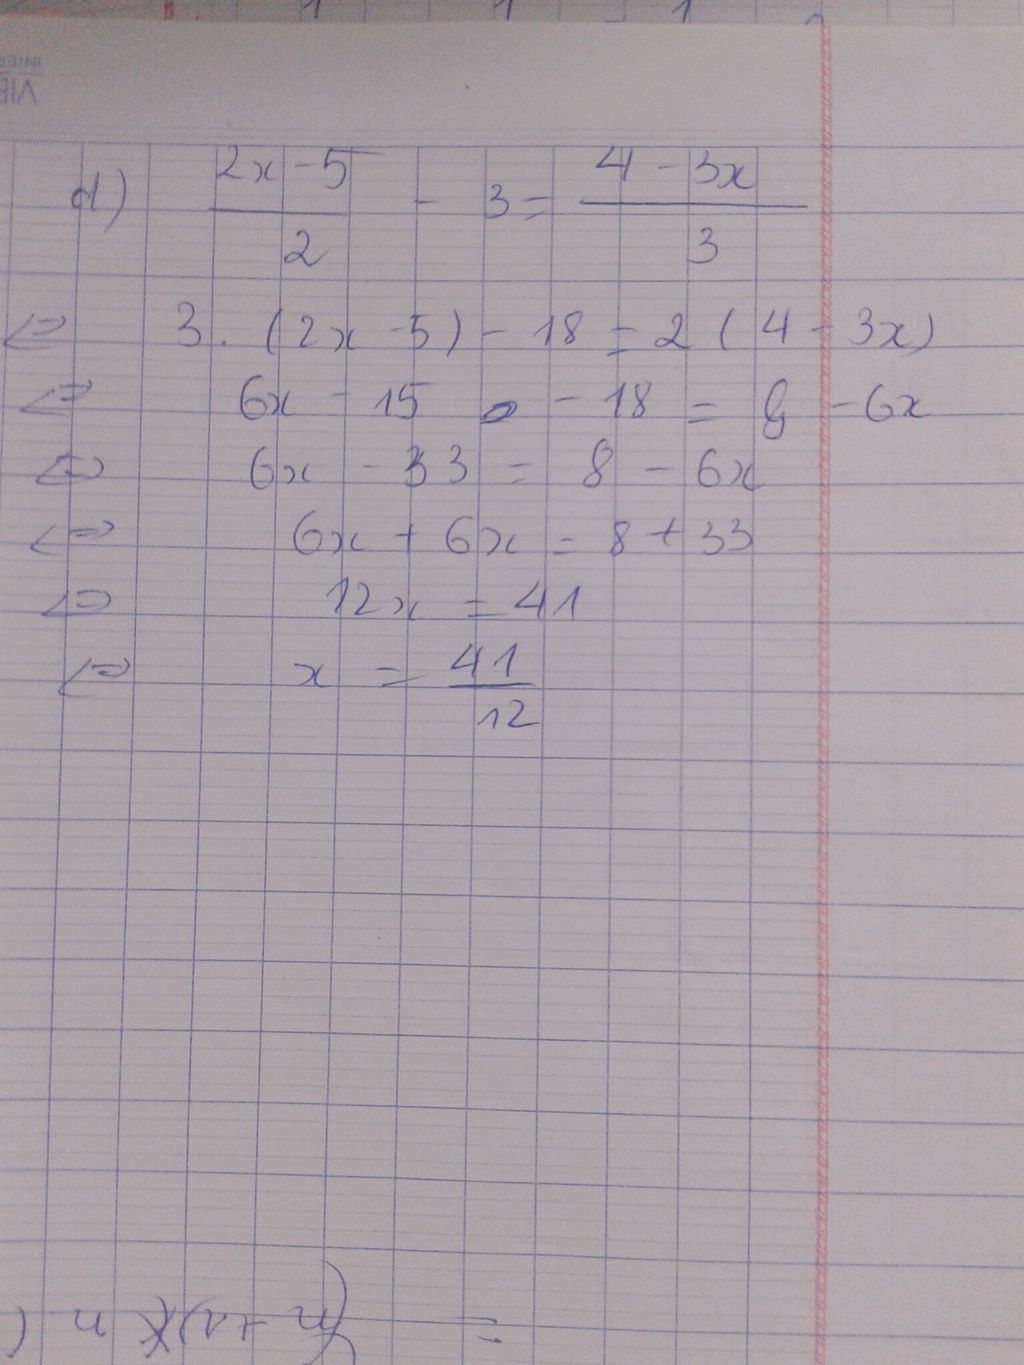 d) (2x - 5)/2 - 3 = (4 - 3x)/3
<=> 3. (2x - 5) - 18 = 2 (4 - 3x)
<=> 6x - 15 - 18 = 8 - 6x
<=> 6x - 33 = 8 - 6x
<=> 6x + 6x = 8 + 33
<=> 12x = 41
<=> x = 41/12